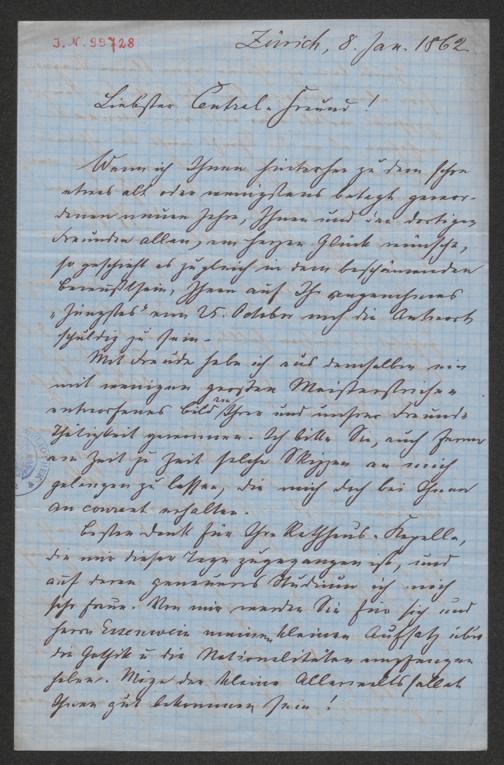 J. N. 99728
Zürich, 8. Jan. 1862
Liebster Central-Freund!
Wenn ich Ihnen hinterher zu dem schon
etwas alt oder wenigstens betagt gewor-
denen neuen Jahre, Ihnen und den dortigen
Freunden allen, von Herzen Glück wünsche,
so geschieht es zugleich in dem beschämenden
Bewußtsein, Ihnen auf Ihr angenehmes
„Jüngstes“ vom 25. October noch die Antwort
schuldig zu sein.
Mit Freude habe ich aus demselben ein
mit wenigen großen Meisterstrichen
entworfenes Bild von Ihrer und unsrer Freunde
Thätigkeit gewonnen. Ich bitte Sie, auch ferner
von Zeit zu Zeit solche Skizzen an mich
gelangen zu lassen, die mich doch bei Ihnen
au courant erhalten.
Besten Dank für Ihre Rathhaus-Kapelle,
die mir dieser Tage zugegangen ist, und
auf deren genaueres Studium ich mich
sehr freue. Von mir werden Sie für sich und
Herrn Essenwein meinen kleinen Aufsatz über
die Gothik u. die Nationalitäten empfangen
haben. Möge der kleine
Ihnen gut bekommen sein!